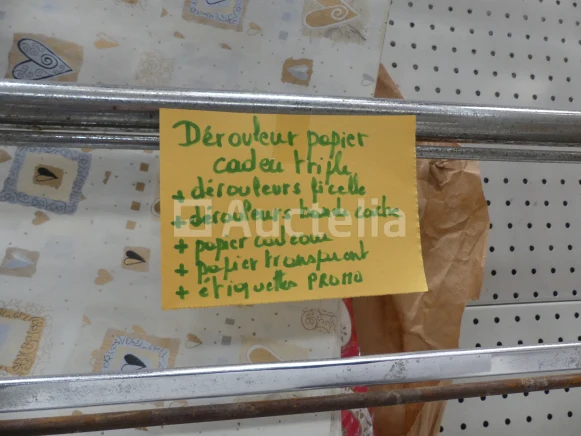 Dérouleur papier
cadeu triple
+ dérouleurs ficelle
+ dérouleurs bande cache
+ papier cadeau
+ papier transparent
+ étiquettes PROMO
Auctelia
Auctelia